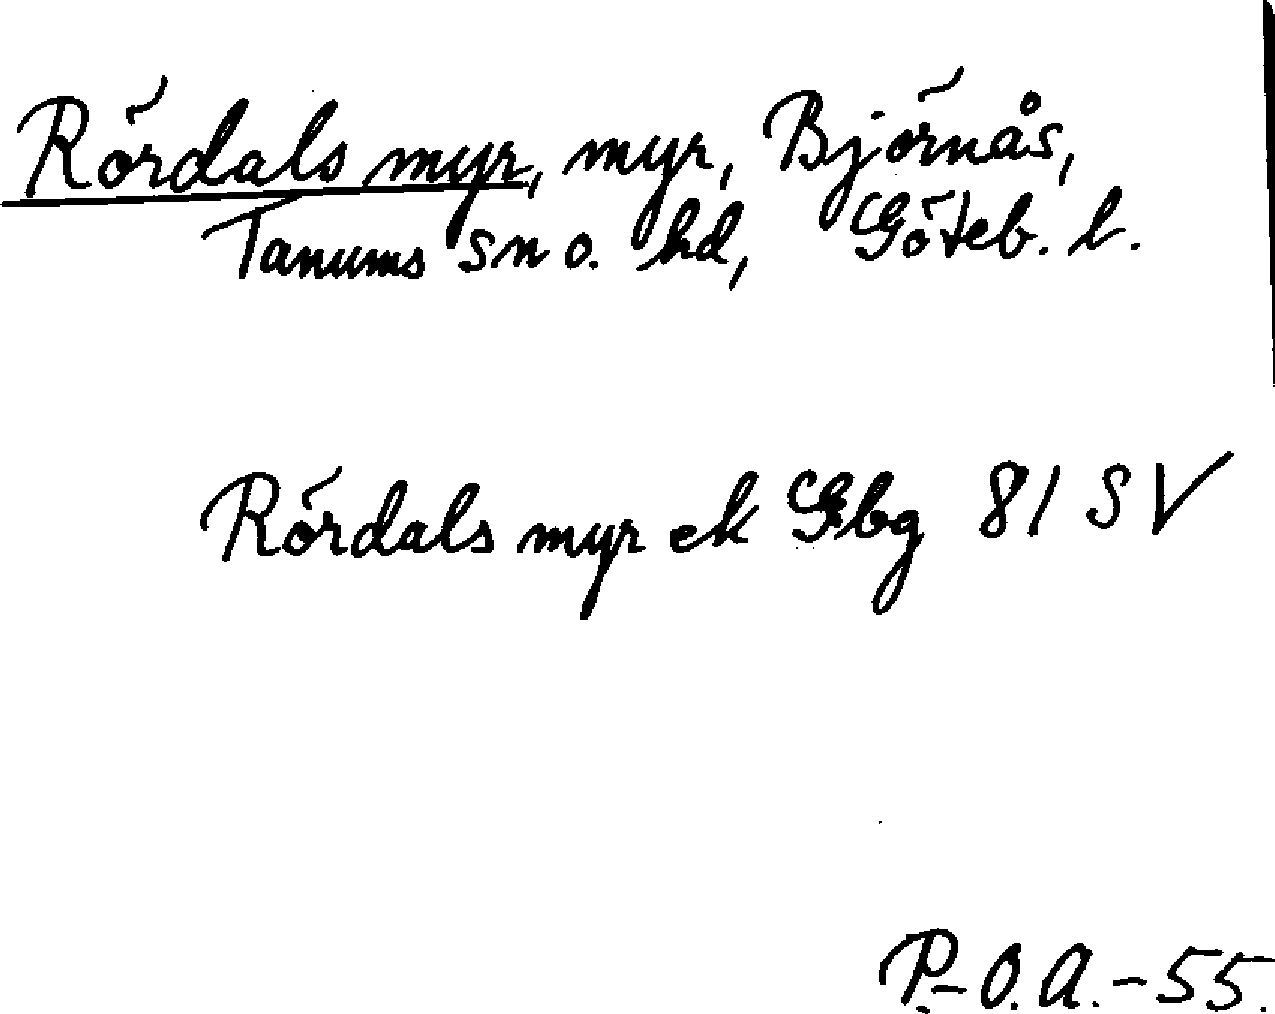 Rördals myr, myr, Björnås,
Tanums sn o. hd, Göteb. l.
Rördals myr ek Gbg 81 SV
P.-O.A.-55.